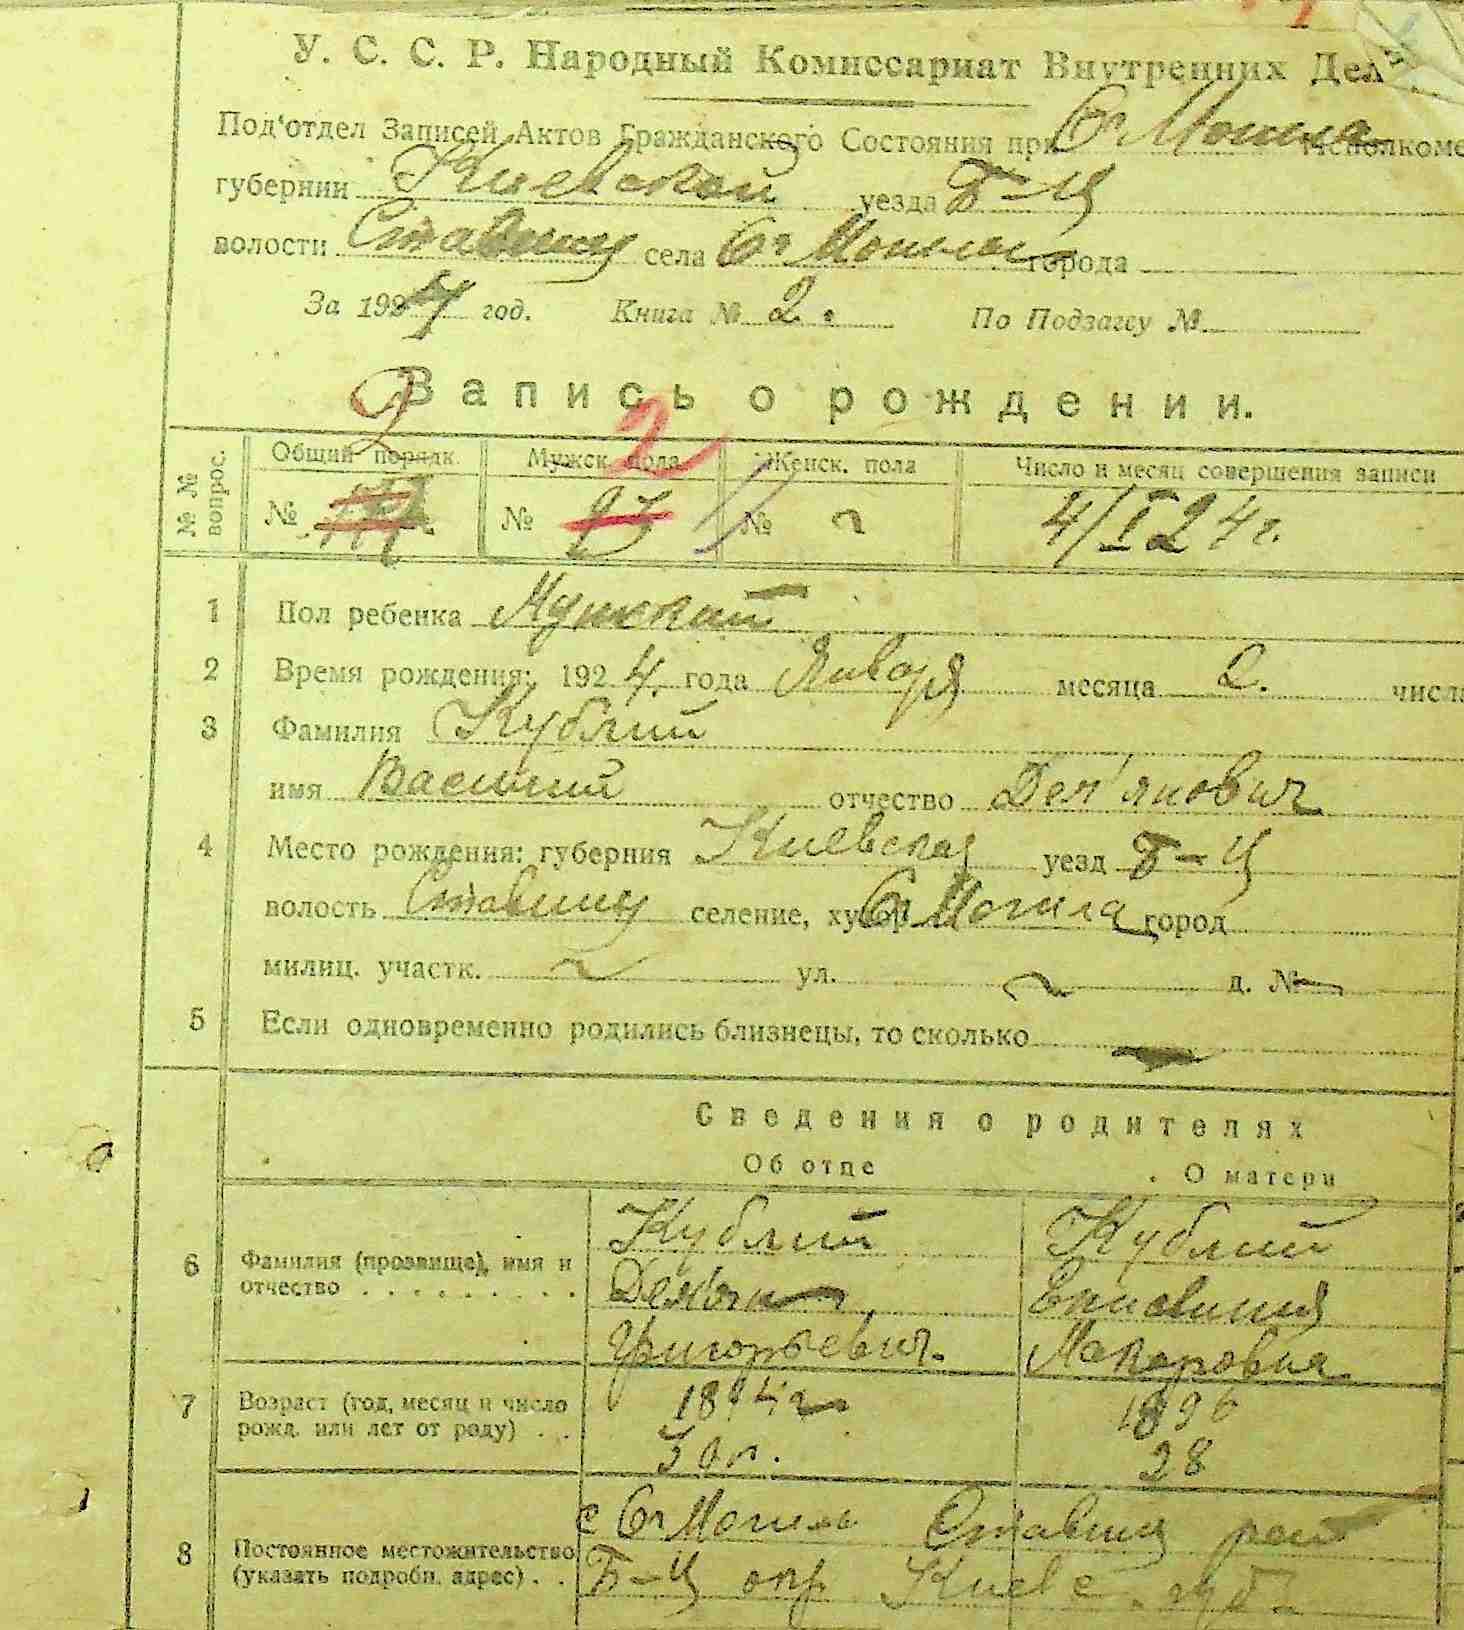 У. С. С. Р. Народный Комиссариат Внутренних Дел
Под'отдел Записей Актов Гражданского Состояния при Исполкоме
губернии Киевской уезда Б-Ц
волости Ставищ села города
За 1924 год. Книга № 2. По Подзагсу №
2
Запись о рождении.
№ № вопрос.
Общий порядк. Мужск. пола 2 Женск. пола Число и месяц совершения записи
№ № 93 № 4/I 24 г.
1 Пол ребенка Мужской
2 Время рождения: 1924. года Января месяца 2. числа
3 Фамилия Кублий
имя Василий отчество Дем'янович
4 Место рождения: губерния Киевская уезд Б-Ц
волость Ставищ селение, хутор Могила город
милиц. участк. ул. д. №
5 Если одновременно родились близнецы, то сколько
Сведения о родителях
Об отце О матери
6 Фамилия (прозвище), имя и отчество Кублий Кублий
Демьян
Григорьевич. Макаровна
7 Возраст (год, месяц и число рожд. или лет от роду) 1894 г 1896
30 л. 28
8 Постоянное местожительство (указать подробн. адрес) с Ставищ рай
Б-Ц окр Киевс. губ.